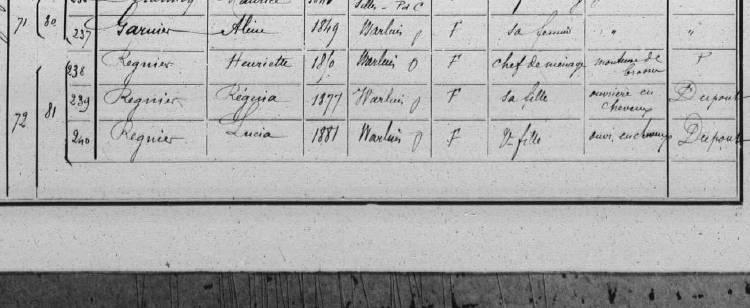 71 80 237 Garnier Aline 1849 Warluis F sa femme " "
238 Regnier Henriette Warluis F chef de ménage monteuse de
brosses P
239 Regnier Régina 1877 Warluis F sa fille ouvrière en
cheveux Dupont
72 81 240 Regnier Lucia 1881 Warluis F fille ouvr. en cheveux Dupont